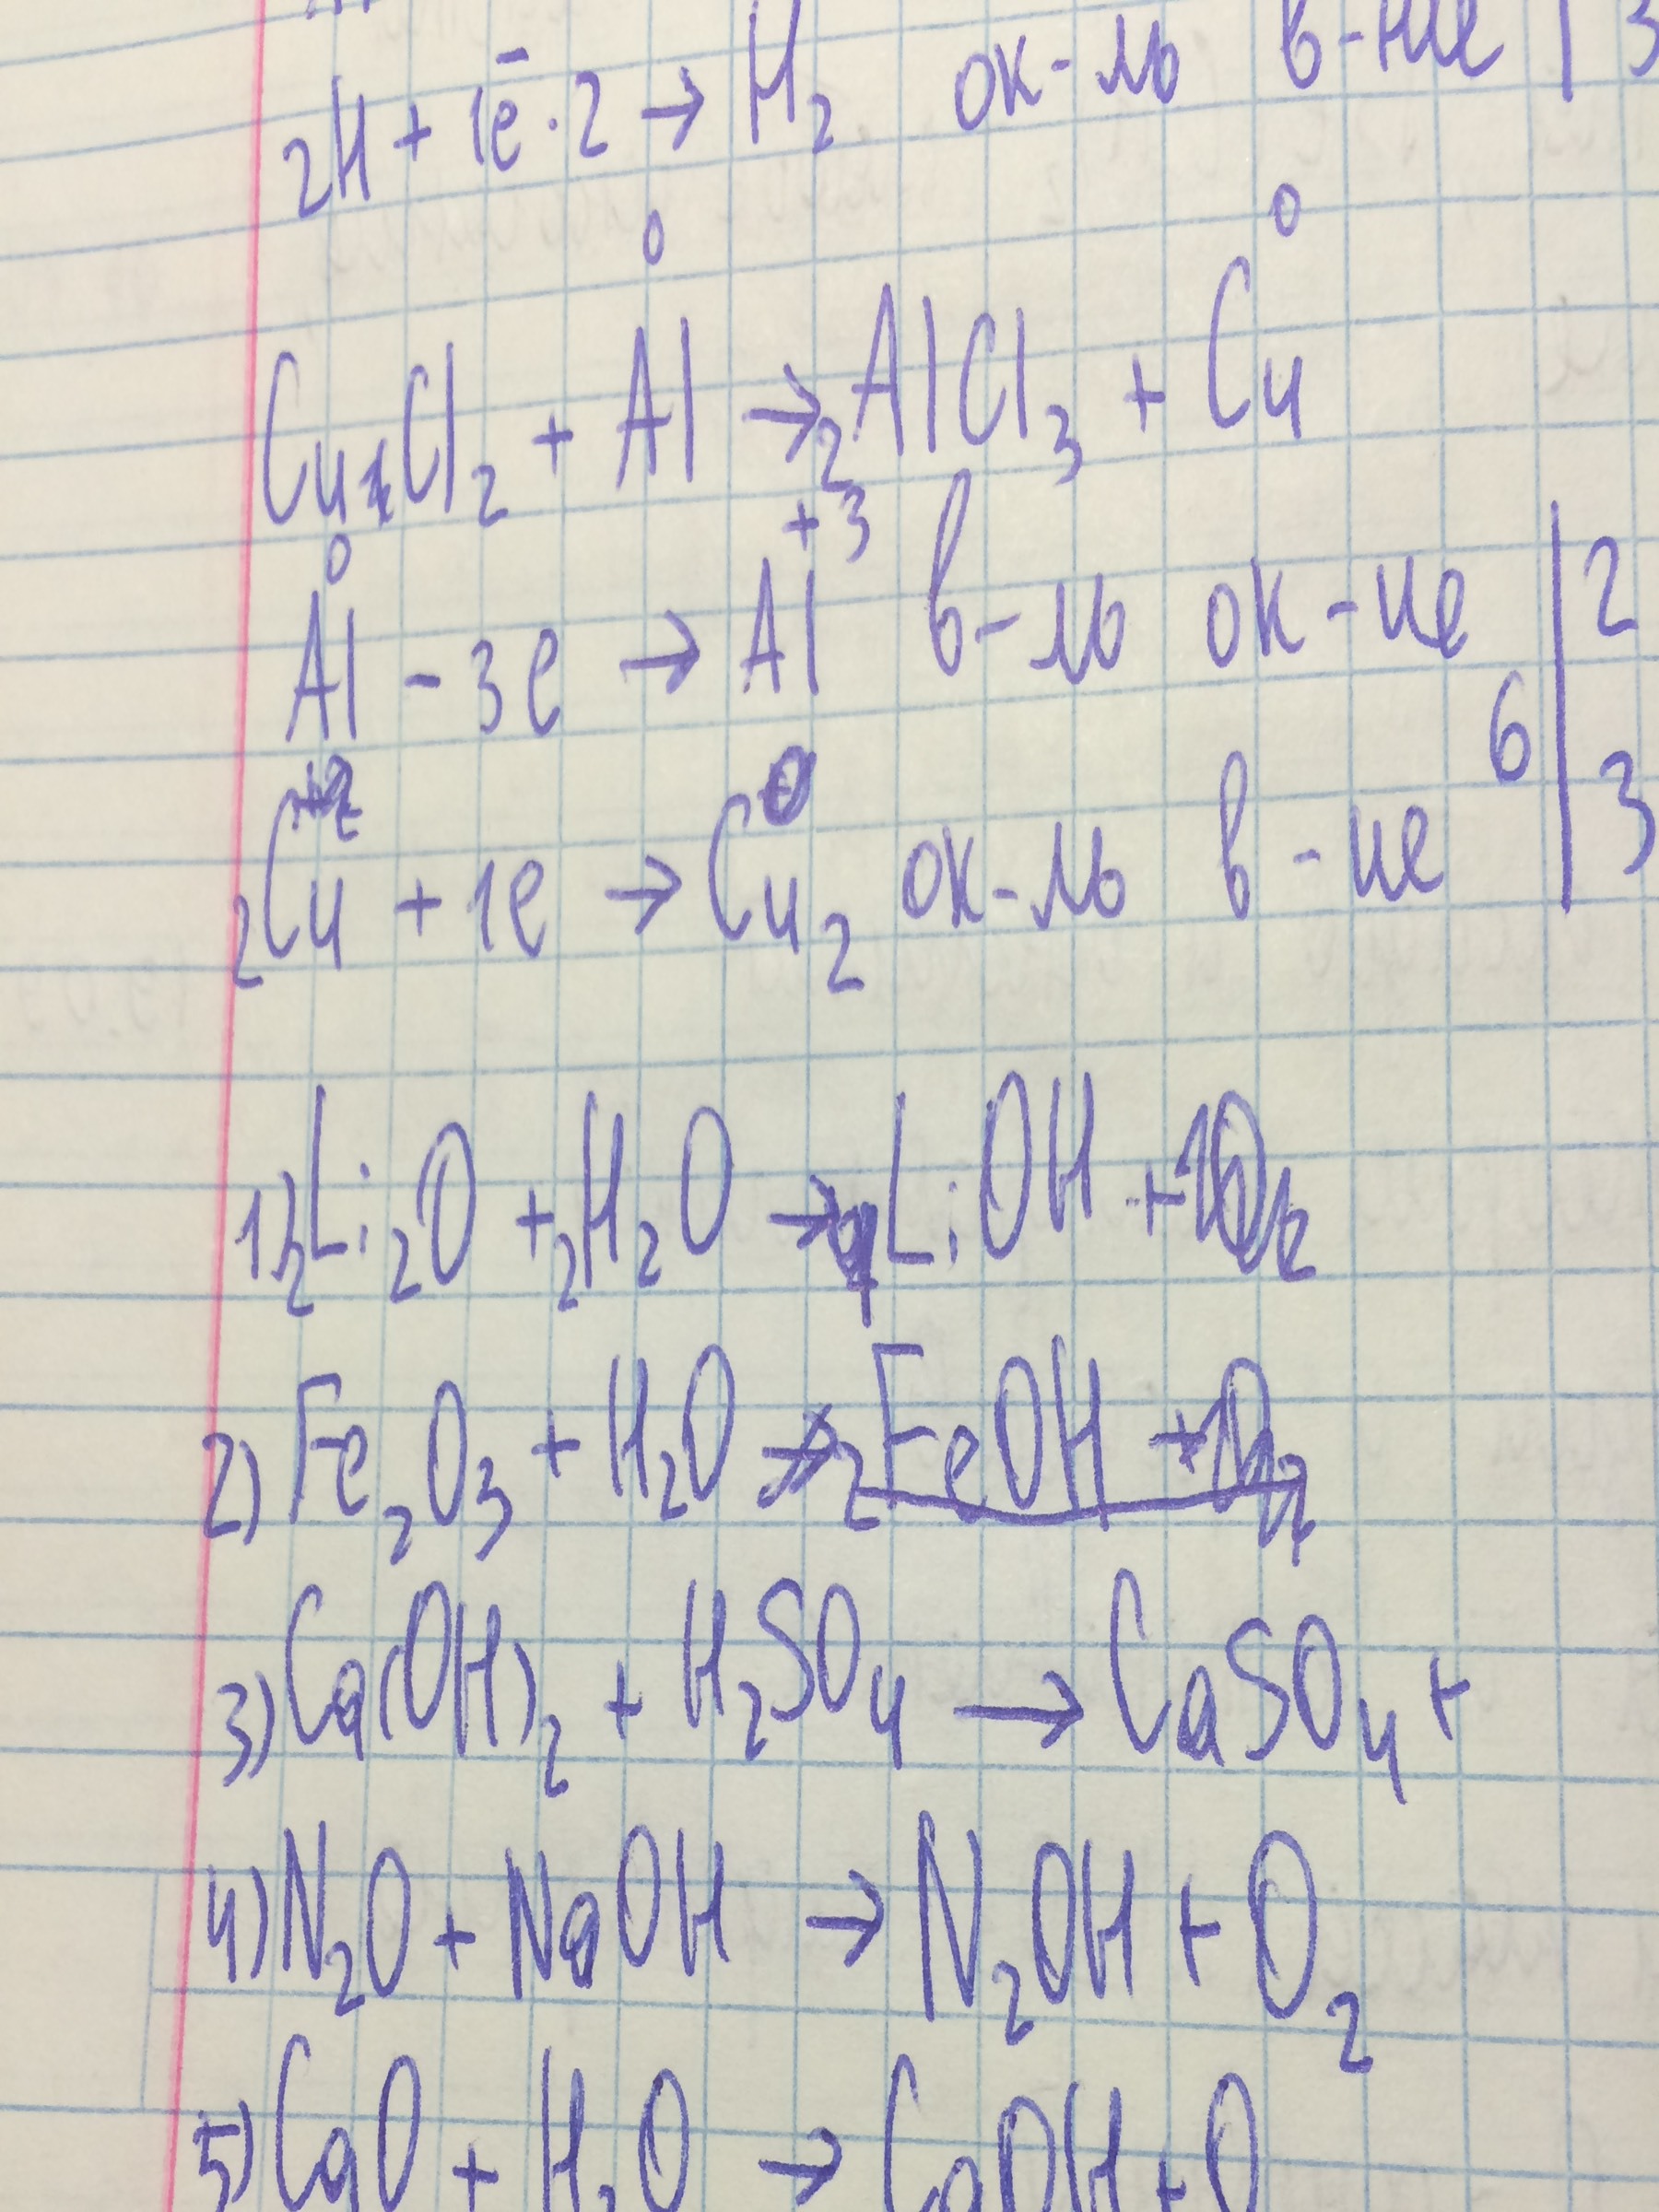 2H + 1e̅ · 2 → H₂ ок-ль в-ние | 3
0 0
CuCl₂ + Al → 2AlCl₃ + Cu
0 +3
Al - 3e → Al в-ль ок-ие | 2
6
+2 0
2Cu + 1e → Cu₂ ок-ль в-ие | 3
1) 2Li₂O + 2H₂O → 4LiOH +
2) Fe₂O₃ + H₂O → 2FeOH +
3) Ca(OH)₂ + H₂SO₄ → CaSO₄ +
4) N₂O + NaOH → N₂OH + O₂
5) CaO + H₂O → CaOH + O